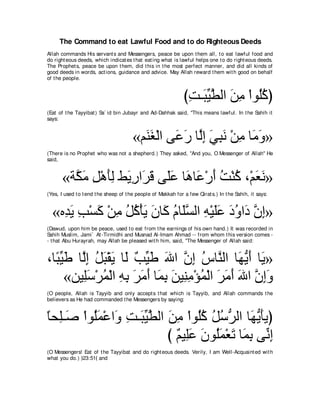 The Command to eat Lawful Food and to do Righteous Deeds
Allah commands His servants and Messengers, peace be upon them all, to eat lawful food and
do righteous deeds, which indicates that eating what is lawful helps one to do righteous deeds.
The Prophets, peace be upon them, did this in the most perfect manner, and did all kinds of
good deeds in words, actions, guidance and advice. May Allah reward them with good on behalf
of the people.
(كُلُواْ مِنَ الطَّيِّبَـتِ)
(Eat of the Tayyibat) Sa`id bin Jubayr and Ad-Dahhak said, "This means lawful. In the Sahih it
says:
«وَمَا مِنْ نَبِيَ إِلَّا رَعَى الْغَنَمَ»
(There is no Prophet who was not a shepherd.) They asked, "And you, O Messenger of Allah" He
said,
«نَعَمْ، كُنْتُ أَرْعَاهَا عَلَى قَرَارِيطَ لِأَهْلِ مَكَّةَ»
(Yes, I used to tend the sheep of the people of Makkah for a few Qirats.) In the Sahih, it says:
«إِنَّ دَاوُدَ عَلَيْهِ السَّلَامُ كَانَ يَأْكُلُ مِنْ كَسْبِ يَدِهِ»
(Dawud, upon him be peace, used to eat from the earnings of his own hand.) It was recorded in
Sahih Muslim, Jami` At-Tirmidhi and Musnad Al-Imam Ahmad -- from whom this version comes -
- that Abu Hurayrah, may Allah be pleased with him, said, "The Messenger of Allah said:
«يَا أَيُّهَا النَّاسُ إِنَّ اللهَ طَيِّبٌ لَا يَقْبَلُ إِلَّا طَيِّبًا،
وَإِنَّ اللهَ أَمَرَ الْمُؤْمِنِينَ بِمَا أَمَرَ بِهِ الْمُرْسَلِينَ»
(O people, Allah is Tayyib and only accepts that which is Tayyib, and Allah commands the
believers as He had commanded the Messengers by saying:
(يأَيُّهَا الرُّسُلُ كُلُواْ مِنَ الطَّيِّبَـتِ وَاعْمَلُواْ صَـلِحاً
إِنِّى بِمَا تَعْمَلُونَ عَلِيمٌ )
(O Messengers! Eat of the Tayyibat and do righteous deeds. Verily, I am Well-Acquainted with
what you do.))23:51( and